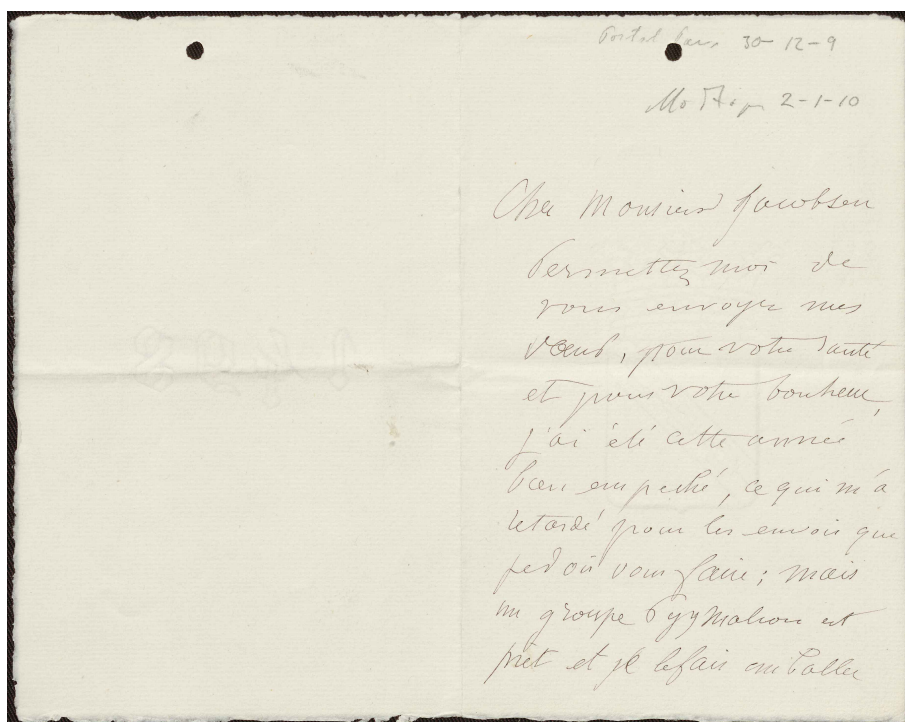 Postal Paris 30-12-9
2-1-10
Cher Monsieur Jacobsen
Permettez moi de
vous envoyer mes
vœux, pour votre santé
et pour votre bonheur,
j'ai été cette année
bien empeché, ce qui m'a
retardé pour les envois que
je dois vous faire; mais
un groupe Pygmalion est
prêt et je le fais emballer